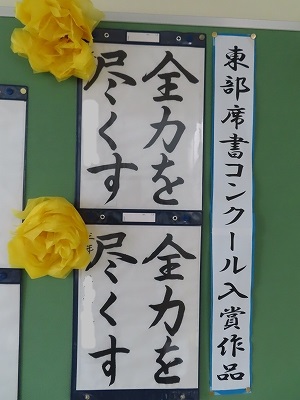 東部席書コンクール入賞作品
全力を
尽くす
全力を
尽くす
三年